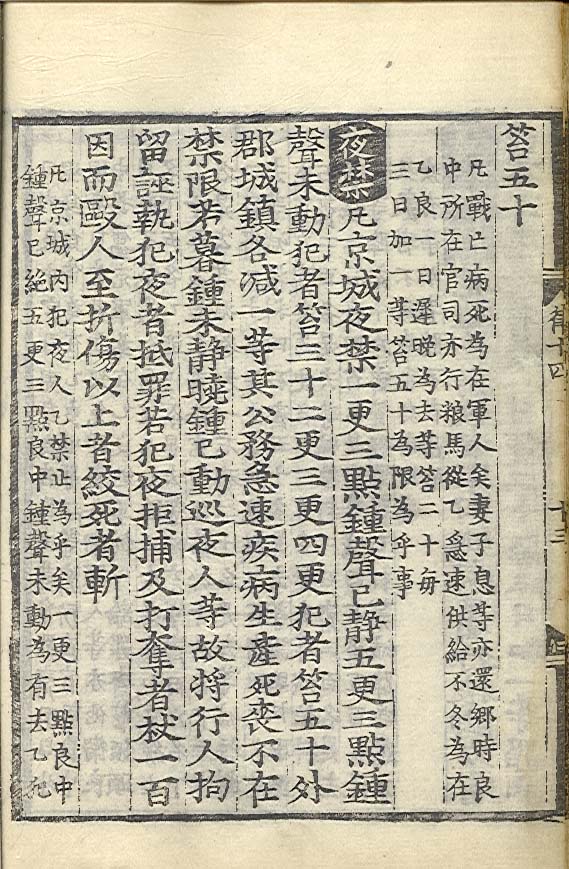 笞五十
凡戰亡病死為在軍人矣妻子息等亦還鄉時良
中所在官司亦行粮馬從乙急速供給不冬為在
乙良一日遲晚為去等笞二十每
三日加一等笞五十為限為乎事
夜禁凡京城夜禁一更三點鍾聲已静五更三點鍾
聲未動犯者笞三十二更三更四更犯者笞五十外
郡城鎮各減一等其公務急速疾病生產死喪不在
禁限若暮鍾未静曉鍾已動巡夜人等故將行人拘
留誣執犯夜者抵罪若犯夜拒捕及打奪者杖一百
因而毆人至折傷以上者絞死者斬
凡京城內犯夜人乙禁止為乎矣一更三點良中
鍾聲已絕五更三點良中鍾聲未動為有去乙犯